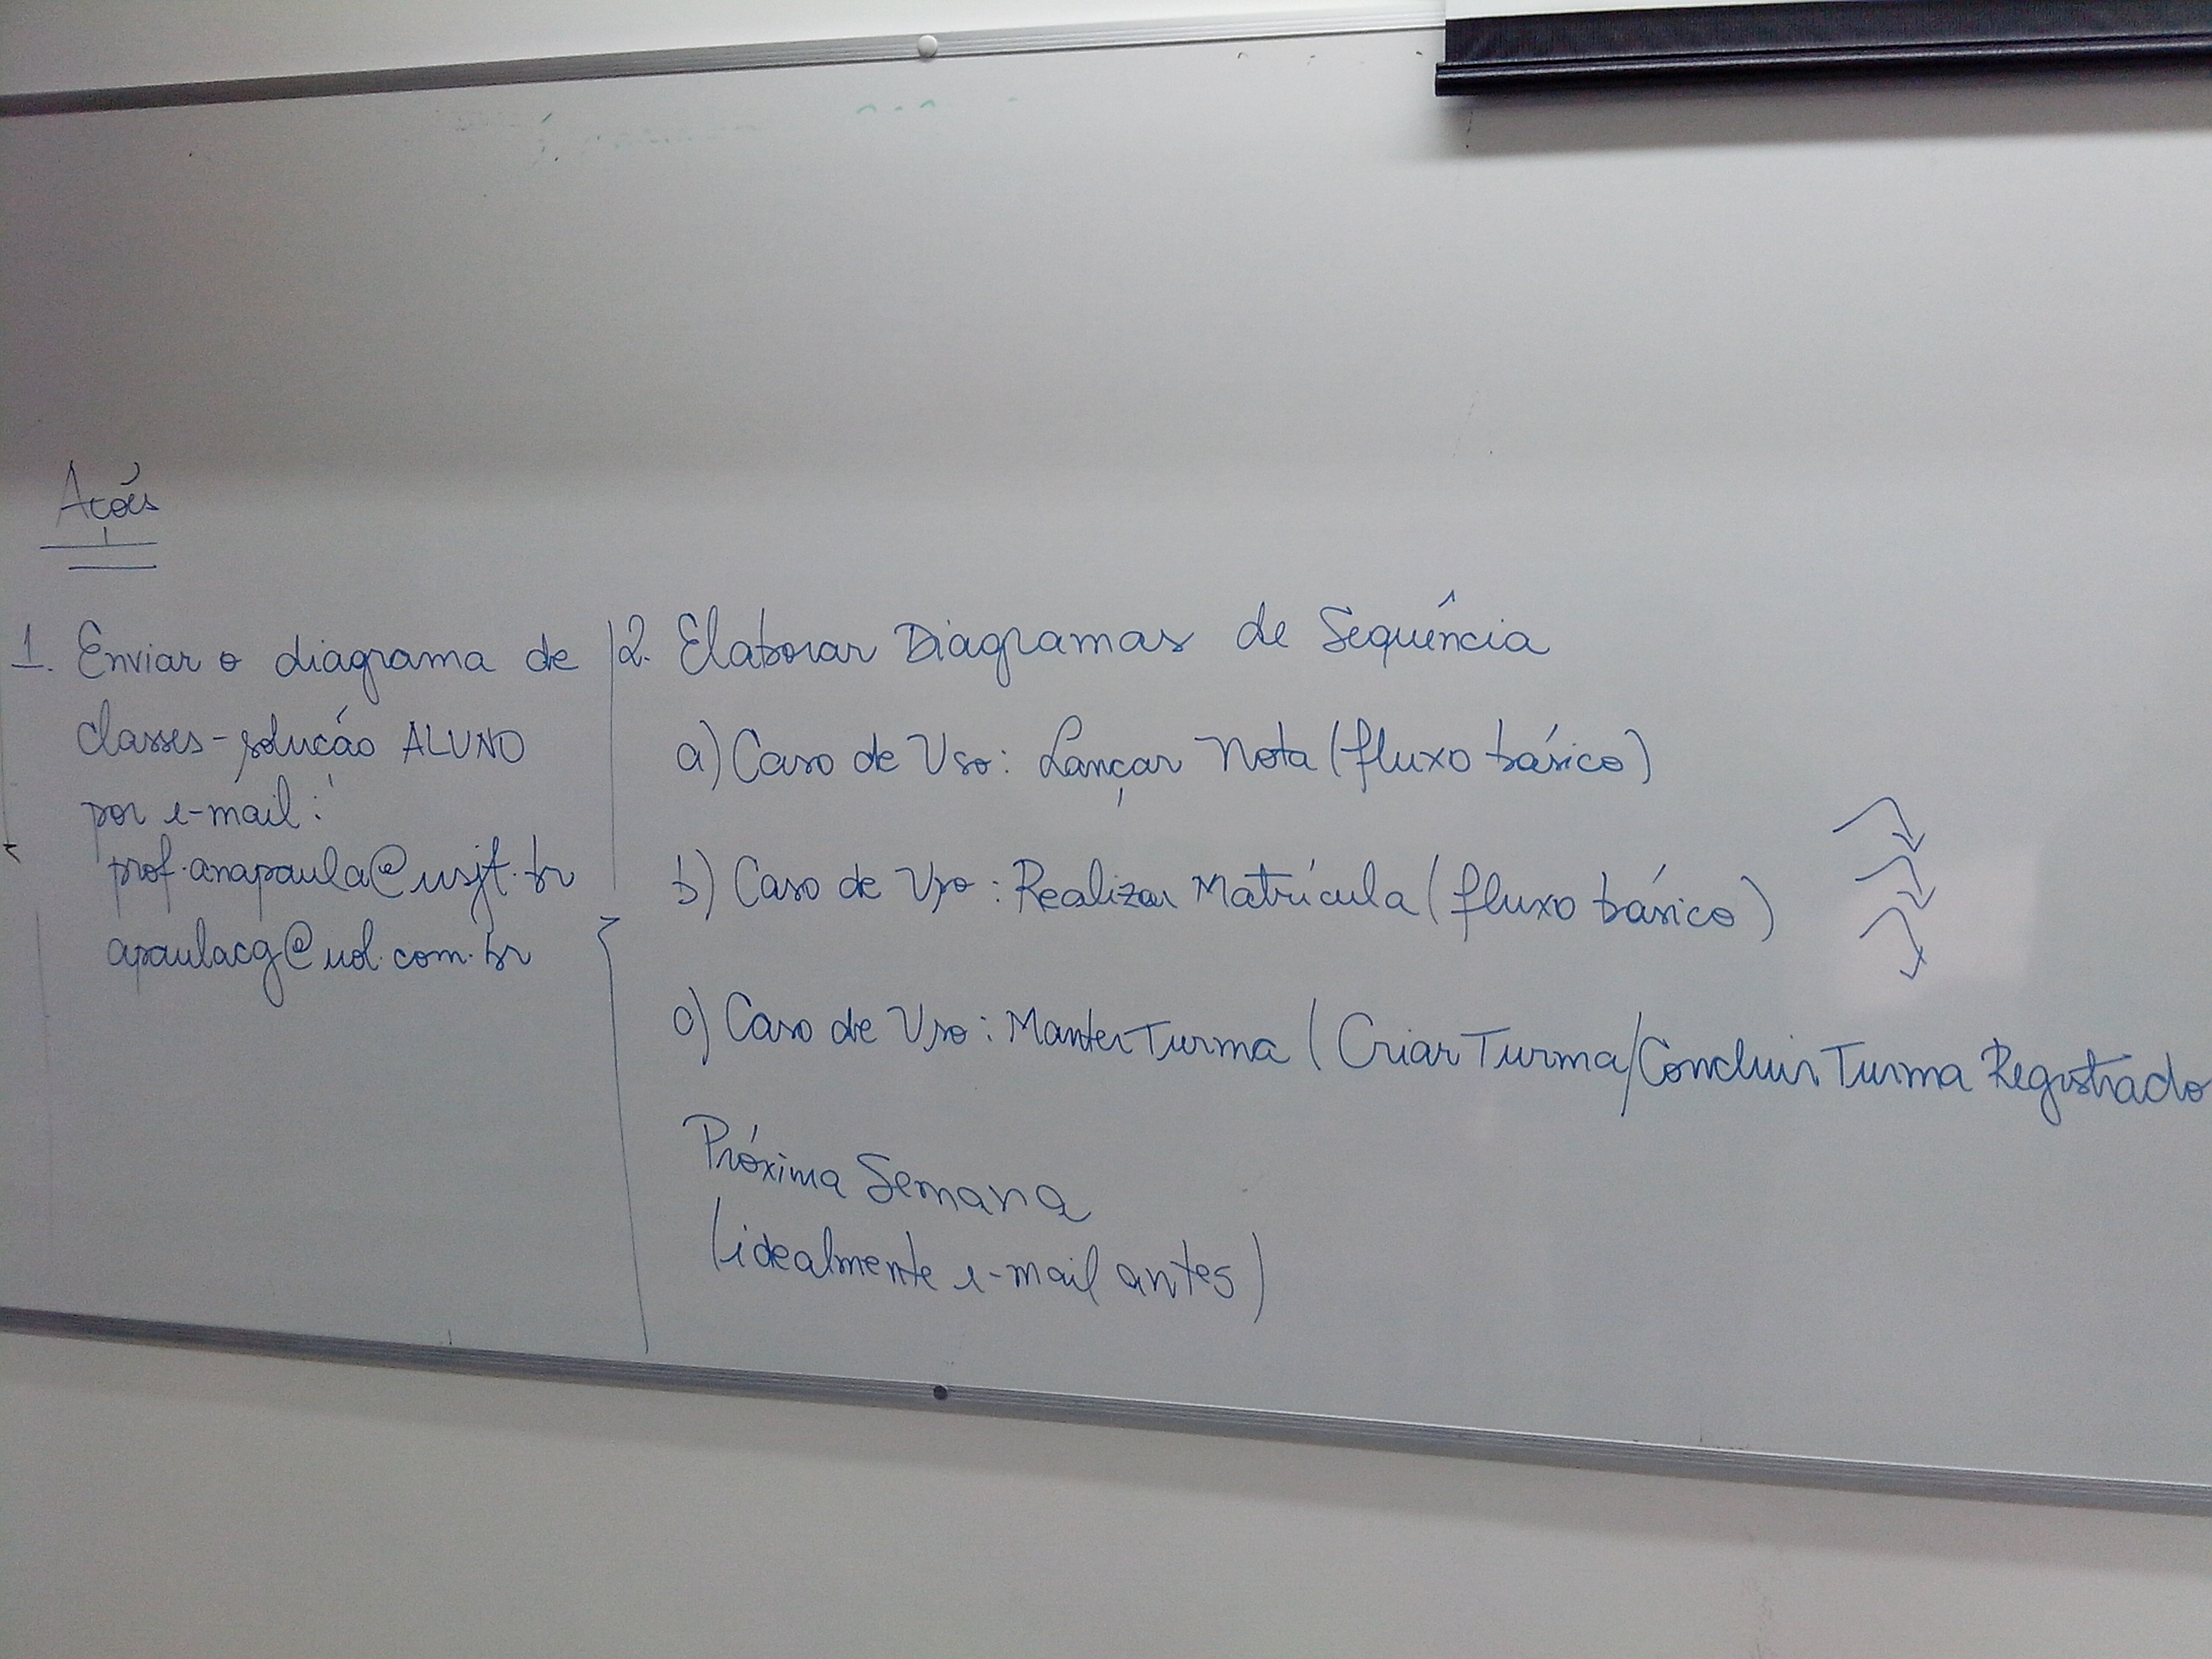 Ações
1. Enviar o diagrama de
classes - solução ALUNO
por e-mail:
prof.anapaula@usjt.br
apaulacg@uol.com.br
2. Elaborar Diagramas de Sequência
a) Caso de Uso: Lançar Nota (fluxo básico)
b) Caso de Uso: Realizar Matrícula (fluxo básico)
c) Caso de Uso: Manter Turma (Criar Turma/Concluir Turma Registrado
Próxima Semana
(idealmente e-mail antes)